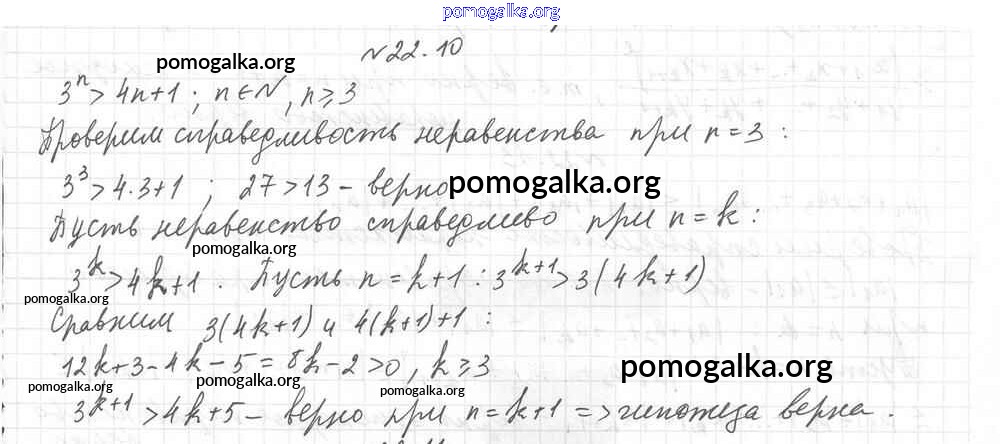 pomogalka.org
№22.10
pomogalka.org
3ⁿ > 4n+1 ; n∈N, n≥3
Проверим справедливость неравенства при n=3 :
3³ > 4·3+1 ; 27 > 13 – верно pomogalka.org
Пусть неравенство справедливо при n=k :
pomogalka.org
3ᵏ > 4k+1 . Пусть n=k+1 : 3ᵏ⁺¹ > 3(4k+1)
pomogalka.org
Сравним 3(4k+1) и 4(k+1)+1 :
pomogalka.org
12k+3-4k-5=8k-2>0, k≥3
pomogalka.org
pomogalka.org pomogalka.org pomogalka.org
3ᵏ⁺¹ > 4k+5 – верно при n=k+1 => гипотеза верна .